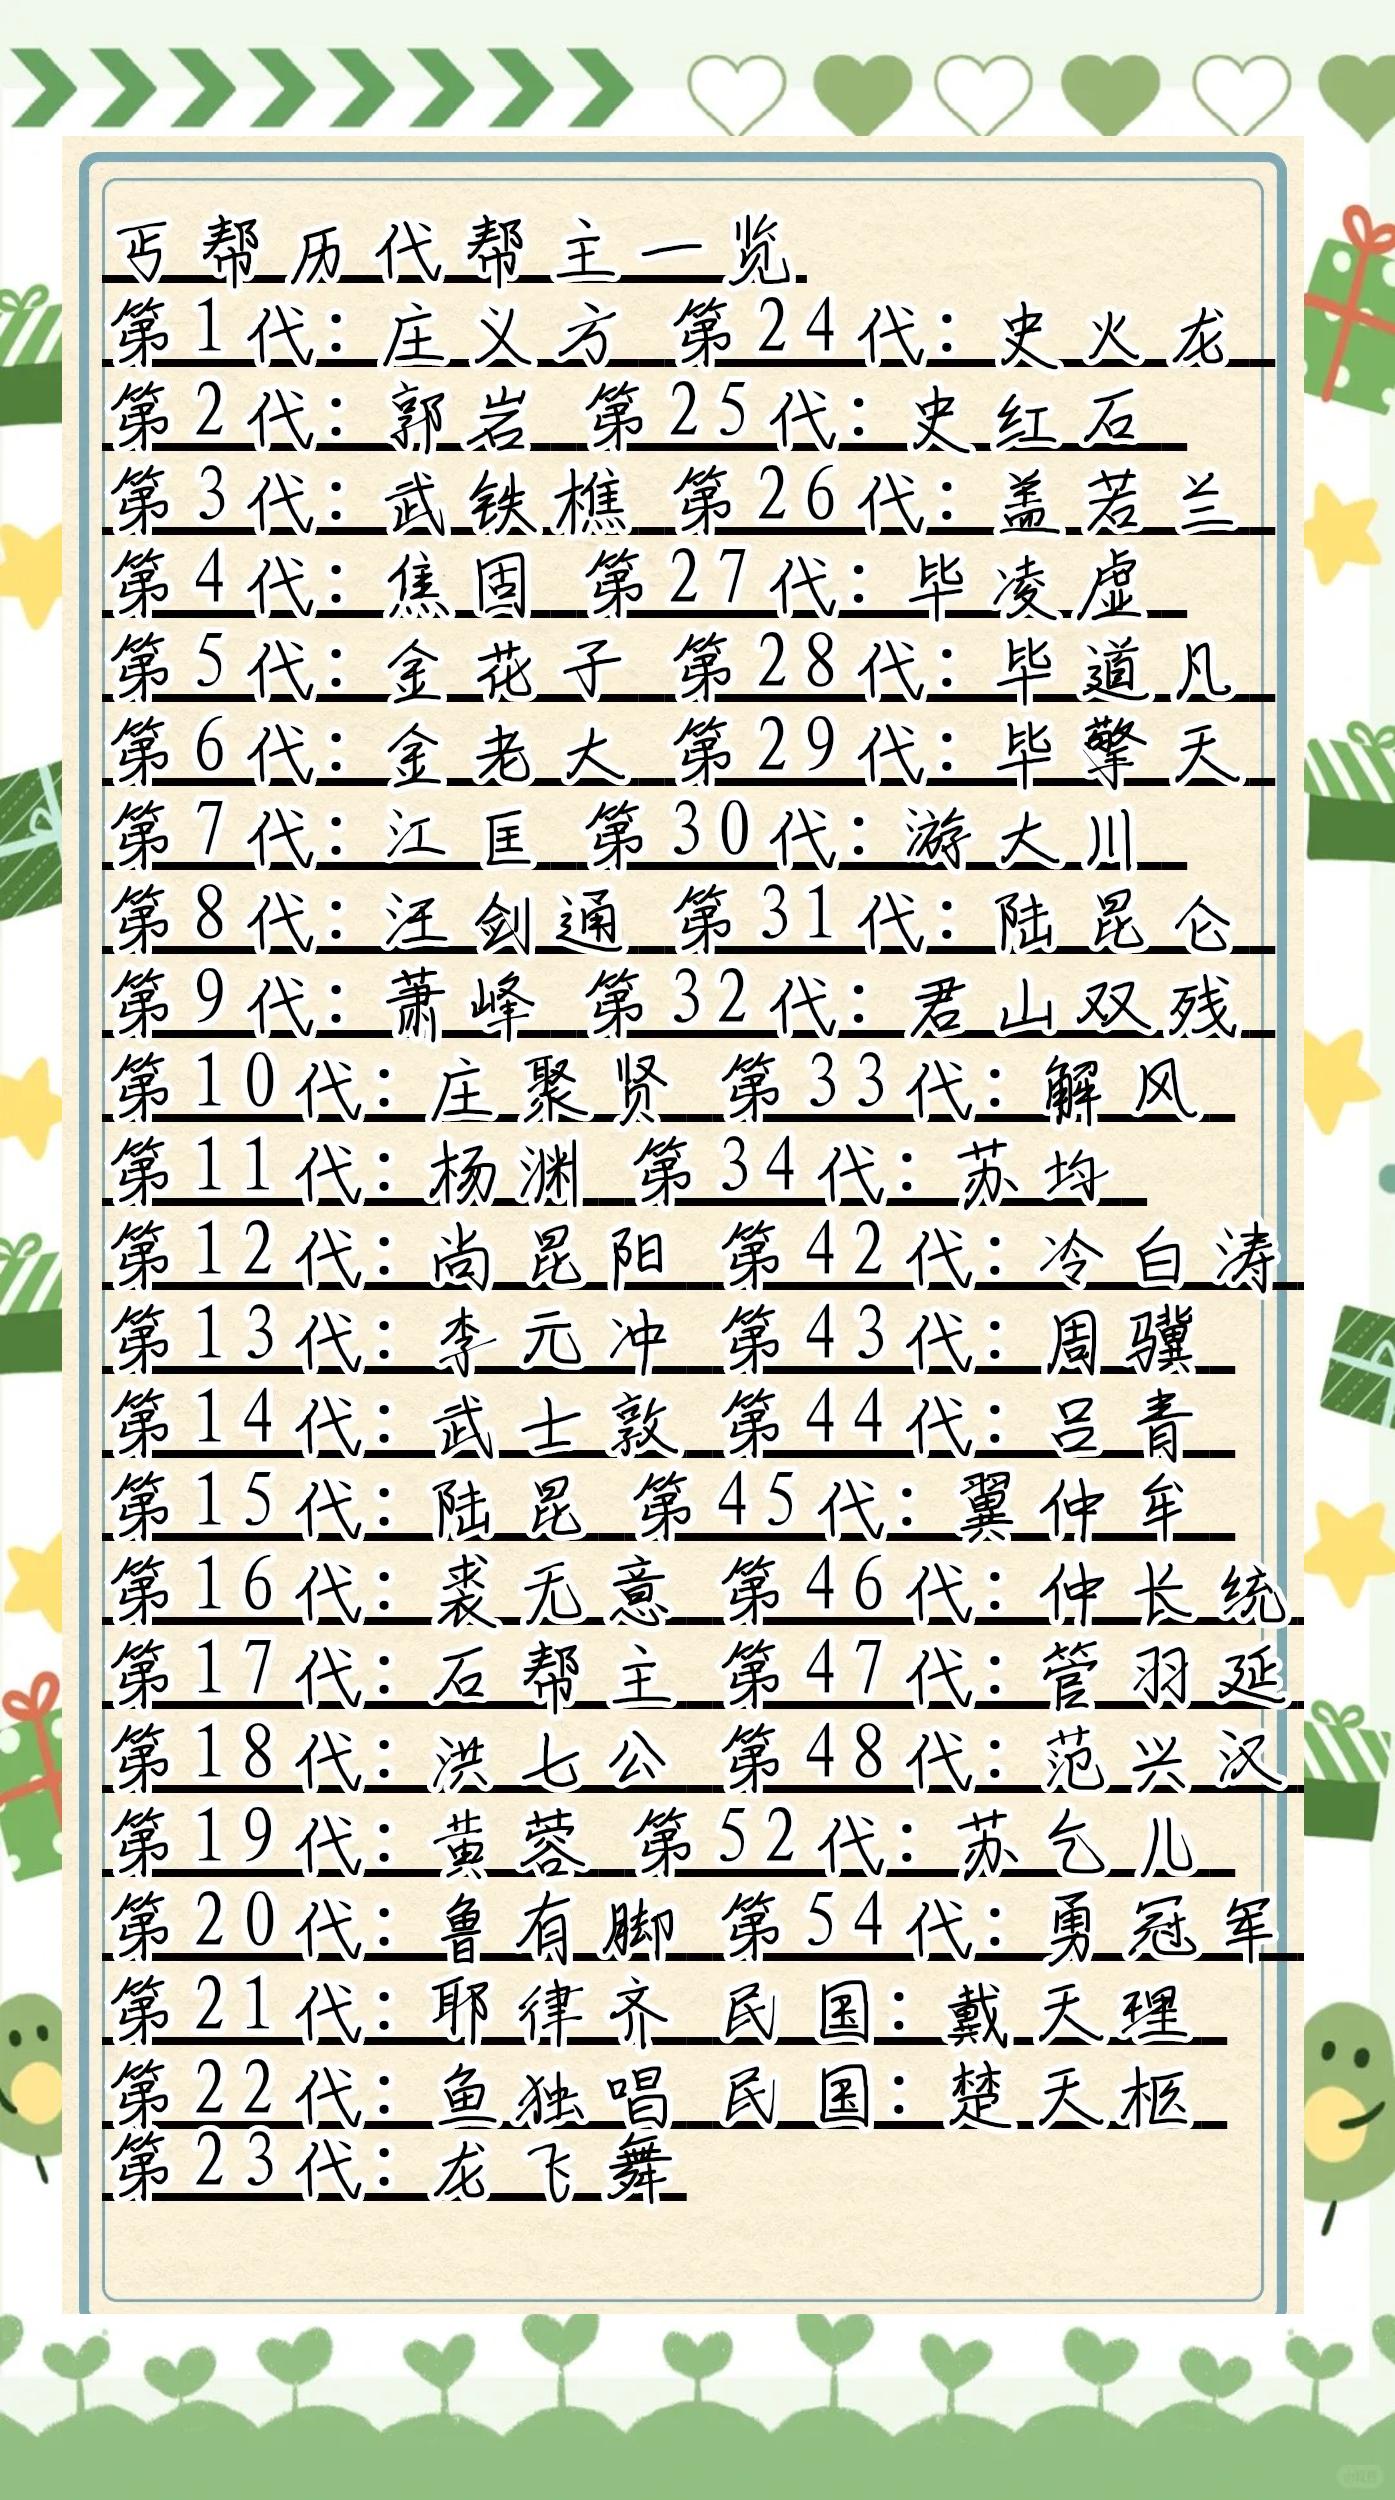 丐帮历代帮主一览
第1代：庄义方 第24代：史火龙
第2代：郭岩 第25代：史红石
第3代：武铁樵 第26代：盖若兰
第4代：焦固 第27代：毕凌虚
第5代：金花子 第28代：毕道凡
第6代：金老大 第29代：毕擎天
第7代：江匡 第30代：游大川
第8代：汪剑通 第31代：陆昆仑
第9代：萧峰 第32代：君山双残
第10代：庄聚贤 第33代：解风
第11代：杨渊 第34代：苏均
第12代：尚昆阳 第42代：冷白涛
第13代：李元冲 第43代：周骥
第14代：武士敦 第44代：吕青
第15代：陆昆 第45代：翼仲牟
第16代：裘无意 第46代：仲长统
第17代：石帮主 第47代：管羽延
第18代：洪七公 第48代：范兴汉
第19代：黄蓉 第52代：苏乞儿
第20代：鲁有脚 第54代：勇冠军
第21代：耶律齐 民国：戴天理
第22代：鱼独唱 民国：楚天柩
第23代：龙飞舞